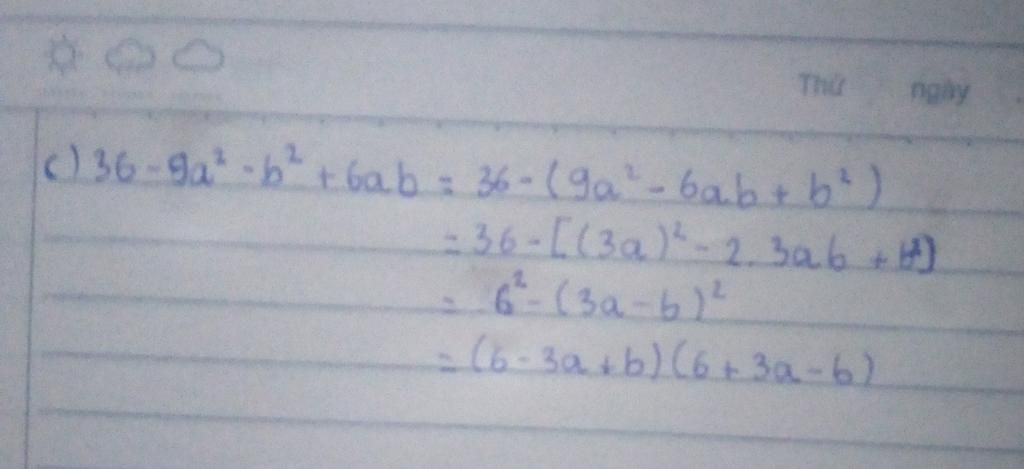 Thứ ngày
c) 36 - 9a² - b² + 6ab = 36 - (9a² - 6ab + b²)
= 36 - [(3a)² - 2. 3ab + b²]
= 6² - (3a - b)²
= (6 - 3a + b)(6 + 3a - b)